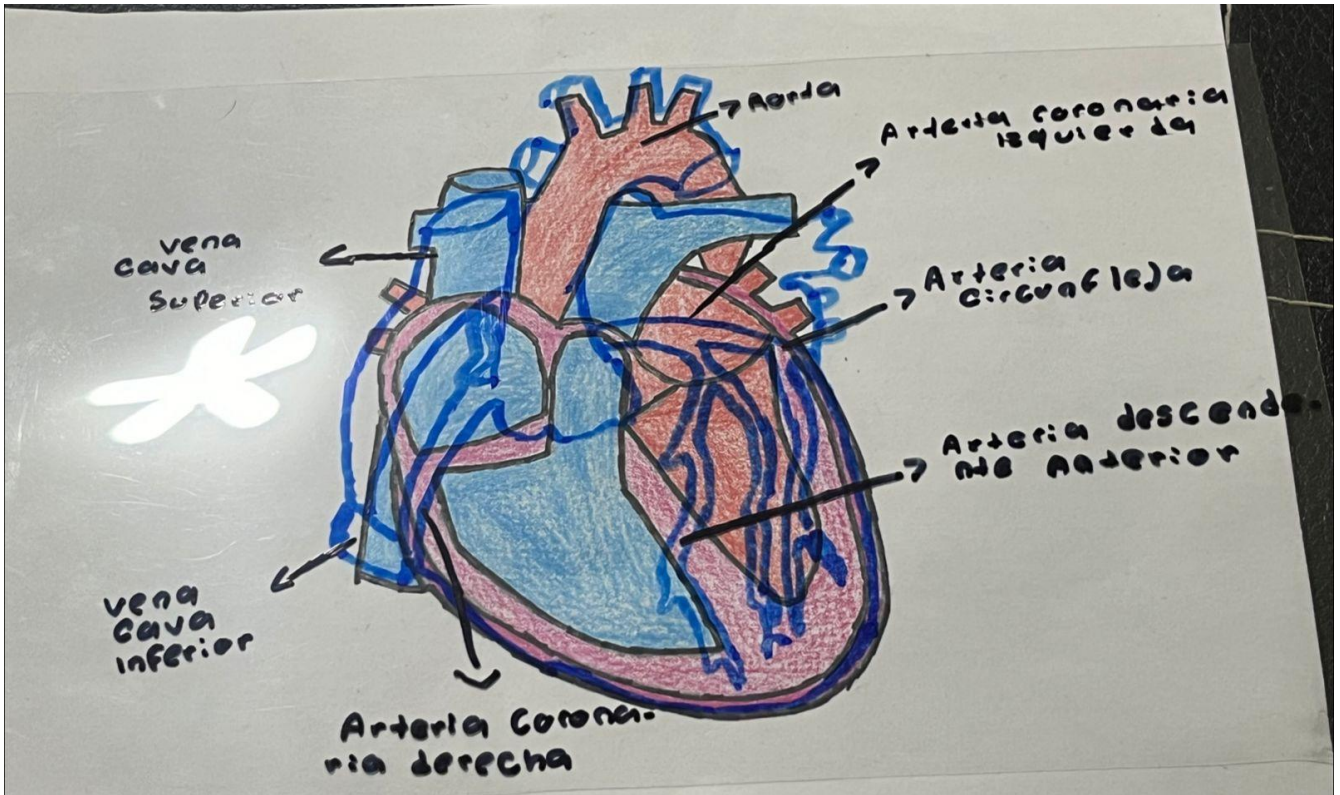 Aorta
Arteria coronaria
izquierda
vena
cava
superior
Arteria
circunfleja
Arteria descende-
nte anterior
vena
cava
inferior
Arteria corona-
ria derecha